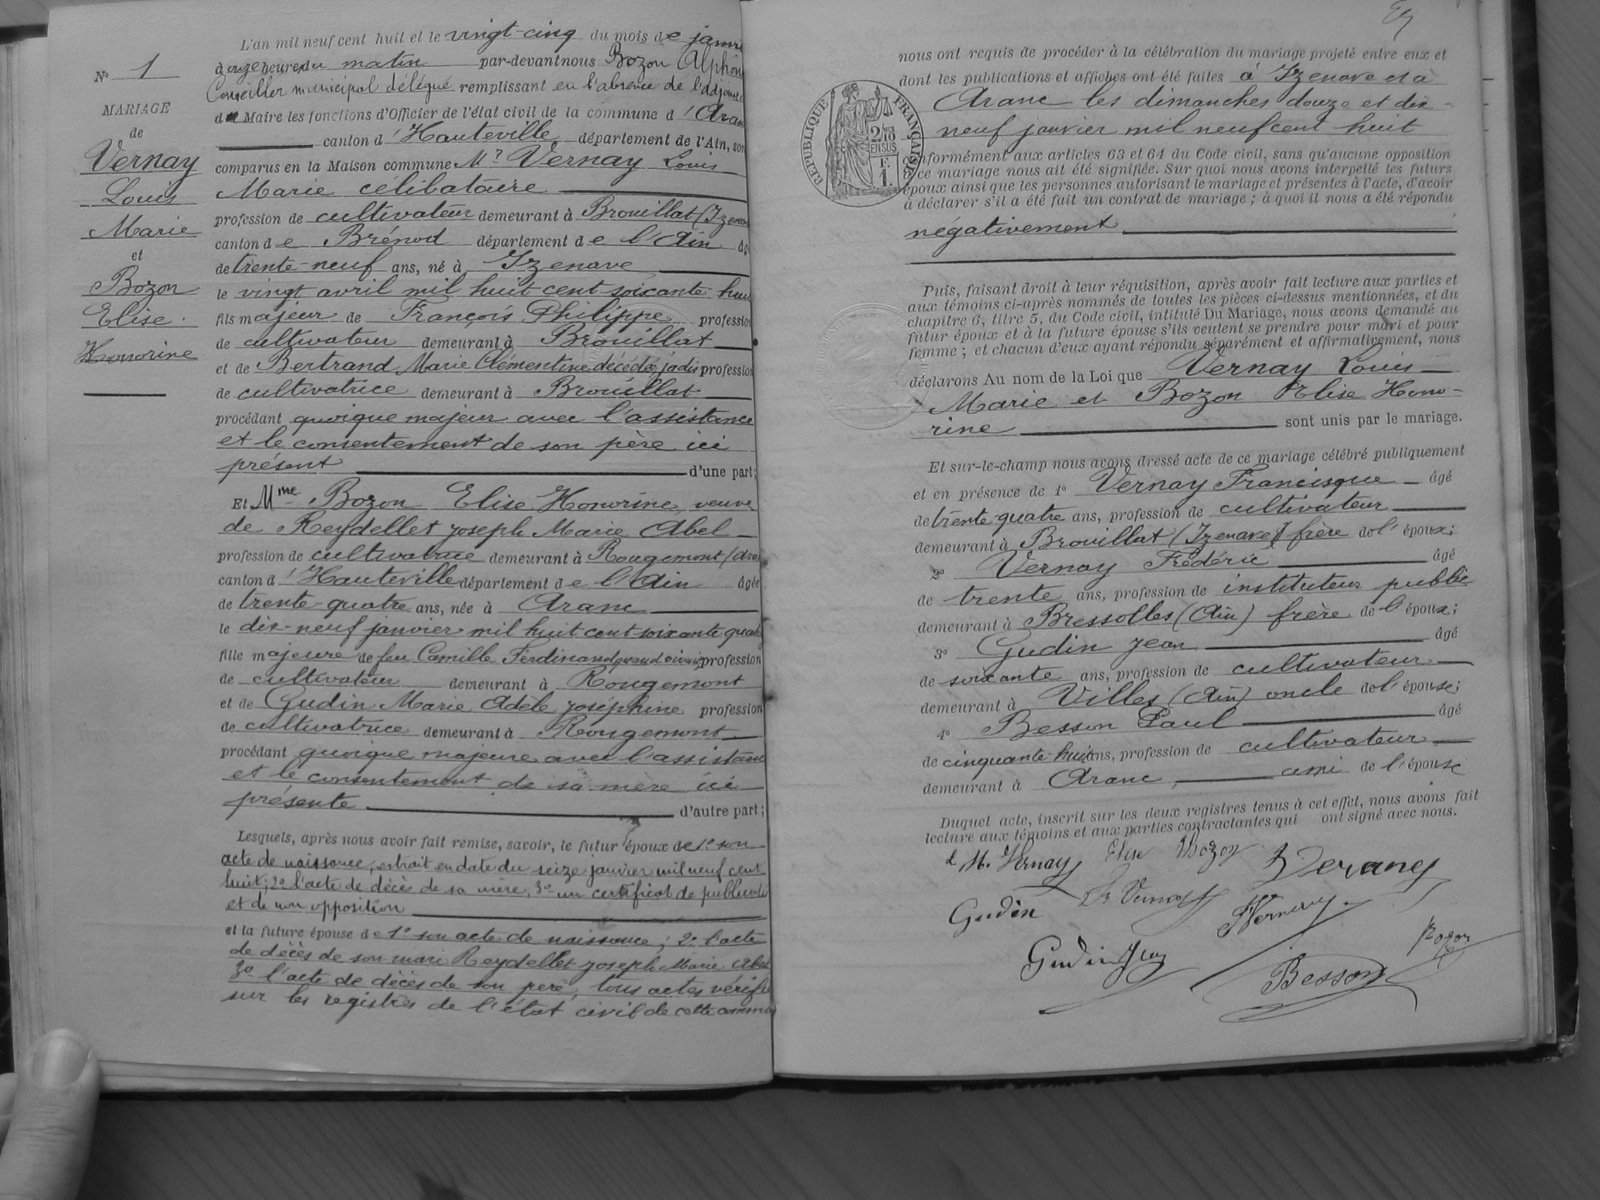 N° 1
MARIAGE
de
Vernay
Louis
Marie
et
Bozon
Elise
Honorine
L'an mil neuf cent huit et le vingt-cinq du mois de janvi
à onze heures du matin par-devant nous Bozon Alphon
Conseiller municipal délégué remplissant en l'absence de l'adjoint
d Maire les fonctions d'Officier de l'état civil de la commune d'Aran
canton d'Hauteville département de l'Ain, son
comparus en la Maison commune Mr Vernay Louis
Marie célibataire
profession de cultivateur demeurant à Brouillat (Izenav
canton de Brénod département de l'Ain âg
de trente-neuf ans, né à Izenave
le vingt avril mil huit cent soixante hui
fils majeur de François Philippe profession
de cultivateur demeurant à Brouillat
et de Bertrand Marie Clémentine décédée, jadis profession
de cultivatrice demeurant à Brouillat
procédant quoique majeur avec l'assistance
et le consentement de son père ici
présent d'une part;
Et Mme Bozon Elise Honorine, veuve
de Reydellet Joseph Marie Abel
profession de cultivatrice demeurant à Rougemont (Aran
canton d'Hauteville département de l'Ain âgée
de trente-quatre ans, née à Aranc
le dix-neuf janvier mil huit cent soixante quat
fille majeure de feu Camille Ferdinand profession
de cultivateur demeurant à Rougemont
et de Gudin Marie Adèle Joséphine profession
de cultivatrice demeurant à Rougemont
procédant quoique majeure avec l'assistanc
et le consentement de sa mère ici
présente d'autre part;
Lesquels, après nous avoir fait remise, savoir, le futur époux de 1° son
acte de naissance, extrait en date du seize janvier mil neuf cent
huit; 2° l'acte de décès de sa mère; 3° un certificat de publicati
et de non opposition
et la future épouse de 1° son acte de naissance; 2° l'acte
de décès de son mari Reydellet Joseph Marie Abel
3° l'acte de décès de son père, tous actes vérifi
sur les registres de l'état civil de cette commu
nous ont requis de procéder à la célébration du mariage projeté entre eux et
dont les publications et affiches ont été faites à Izenave et à
Aranc les dimanches douze et dix-
neuf janvier mil neuf cent huit
RÉPUBLIQUE FRANÇAISE
nformément aux articles 63 et 64 du Code civil, sans qu'aucune opposition
ce mariage nous ait été signifiée. Sur quoi nous avons interpellé les futurs
époux ainsi que les personnes autorisant le mariage et présentes à l'acte, d'avoir
à déclarer s'il a été fait un contrat de mariage; à quoi il nous a été répondu
négativement
Puis, faisant droit à leur réquisition, après avoir fait lecture aux parties et
aux témoins ci-après nommés de toutes les pièces ci-dessus mentionnées, et du
chapitre 6, titre 5, du Code civil, intitulé Du Mariage, nous avons demandé au
futur époux et à la future épouse s'ils veulent se prendre pour mari et pour
femme; et chacun d'eux ayant répondu séparément et affirmativement, nous
déclarons Au nom de la Loi que Vernay Louis
Marie et Bozon Elise Hono-
rine sont unis par le mariage.
Et sur-le-champ nous avons dressé acte de ce mariage célébré publiquement
et en présence de 1° Vernay Francisque âgé
de trente-quatre ans, profession de cultivateur
demeurant à Brouillat (Izenave) frère de l'époux;
2° Vernay Frédéric âgé
de trente ans, profession de instituteur public
demeurant à Bressolles (Ain) frère de l'époux;
3° Gudin Jean âgé
de soixante ans, profession de cultivateur
demeurant à Villes (Ain) oncle de l'épouse;
4° Besson Paul âgé
de cinquante-huit ans, profession de cultivateur
demeurant à Aranc, ami de l'épouse
Duquel acte, inscrit sur les deux registres tenus à cet effet, nous avons fait
lecture aux témoins et aux parties contractantes qui ont signé avec nous.
L M. Vernay Elise Bozon
Gudin Vernay
Gudin Jean Besson Bozon